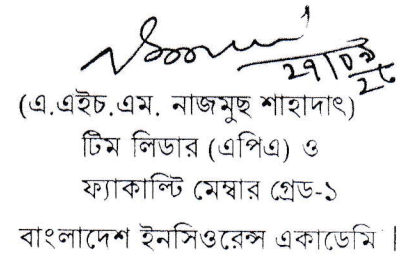 (এ.এইচ.এম. নাজমুছ শাহাদাৎ)
টিম লিডার (এপিএ) ও
ফ্যাকাল্টি মেম্বার গ্রেড-১
বাংলাদেশ ইনসিওরেন্স একাডেমি।